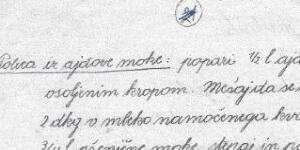 Potica iz ajdove moke: popari ½ l ajd
osoljenim kropom. Mešaj da se
2 dkg v mleko namočenega kva
¾ l pšenične moke, stepaj in po